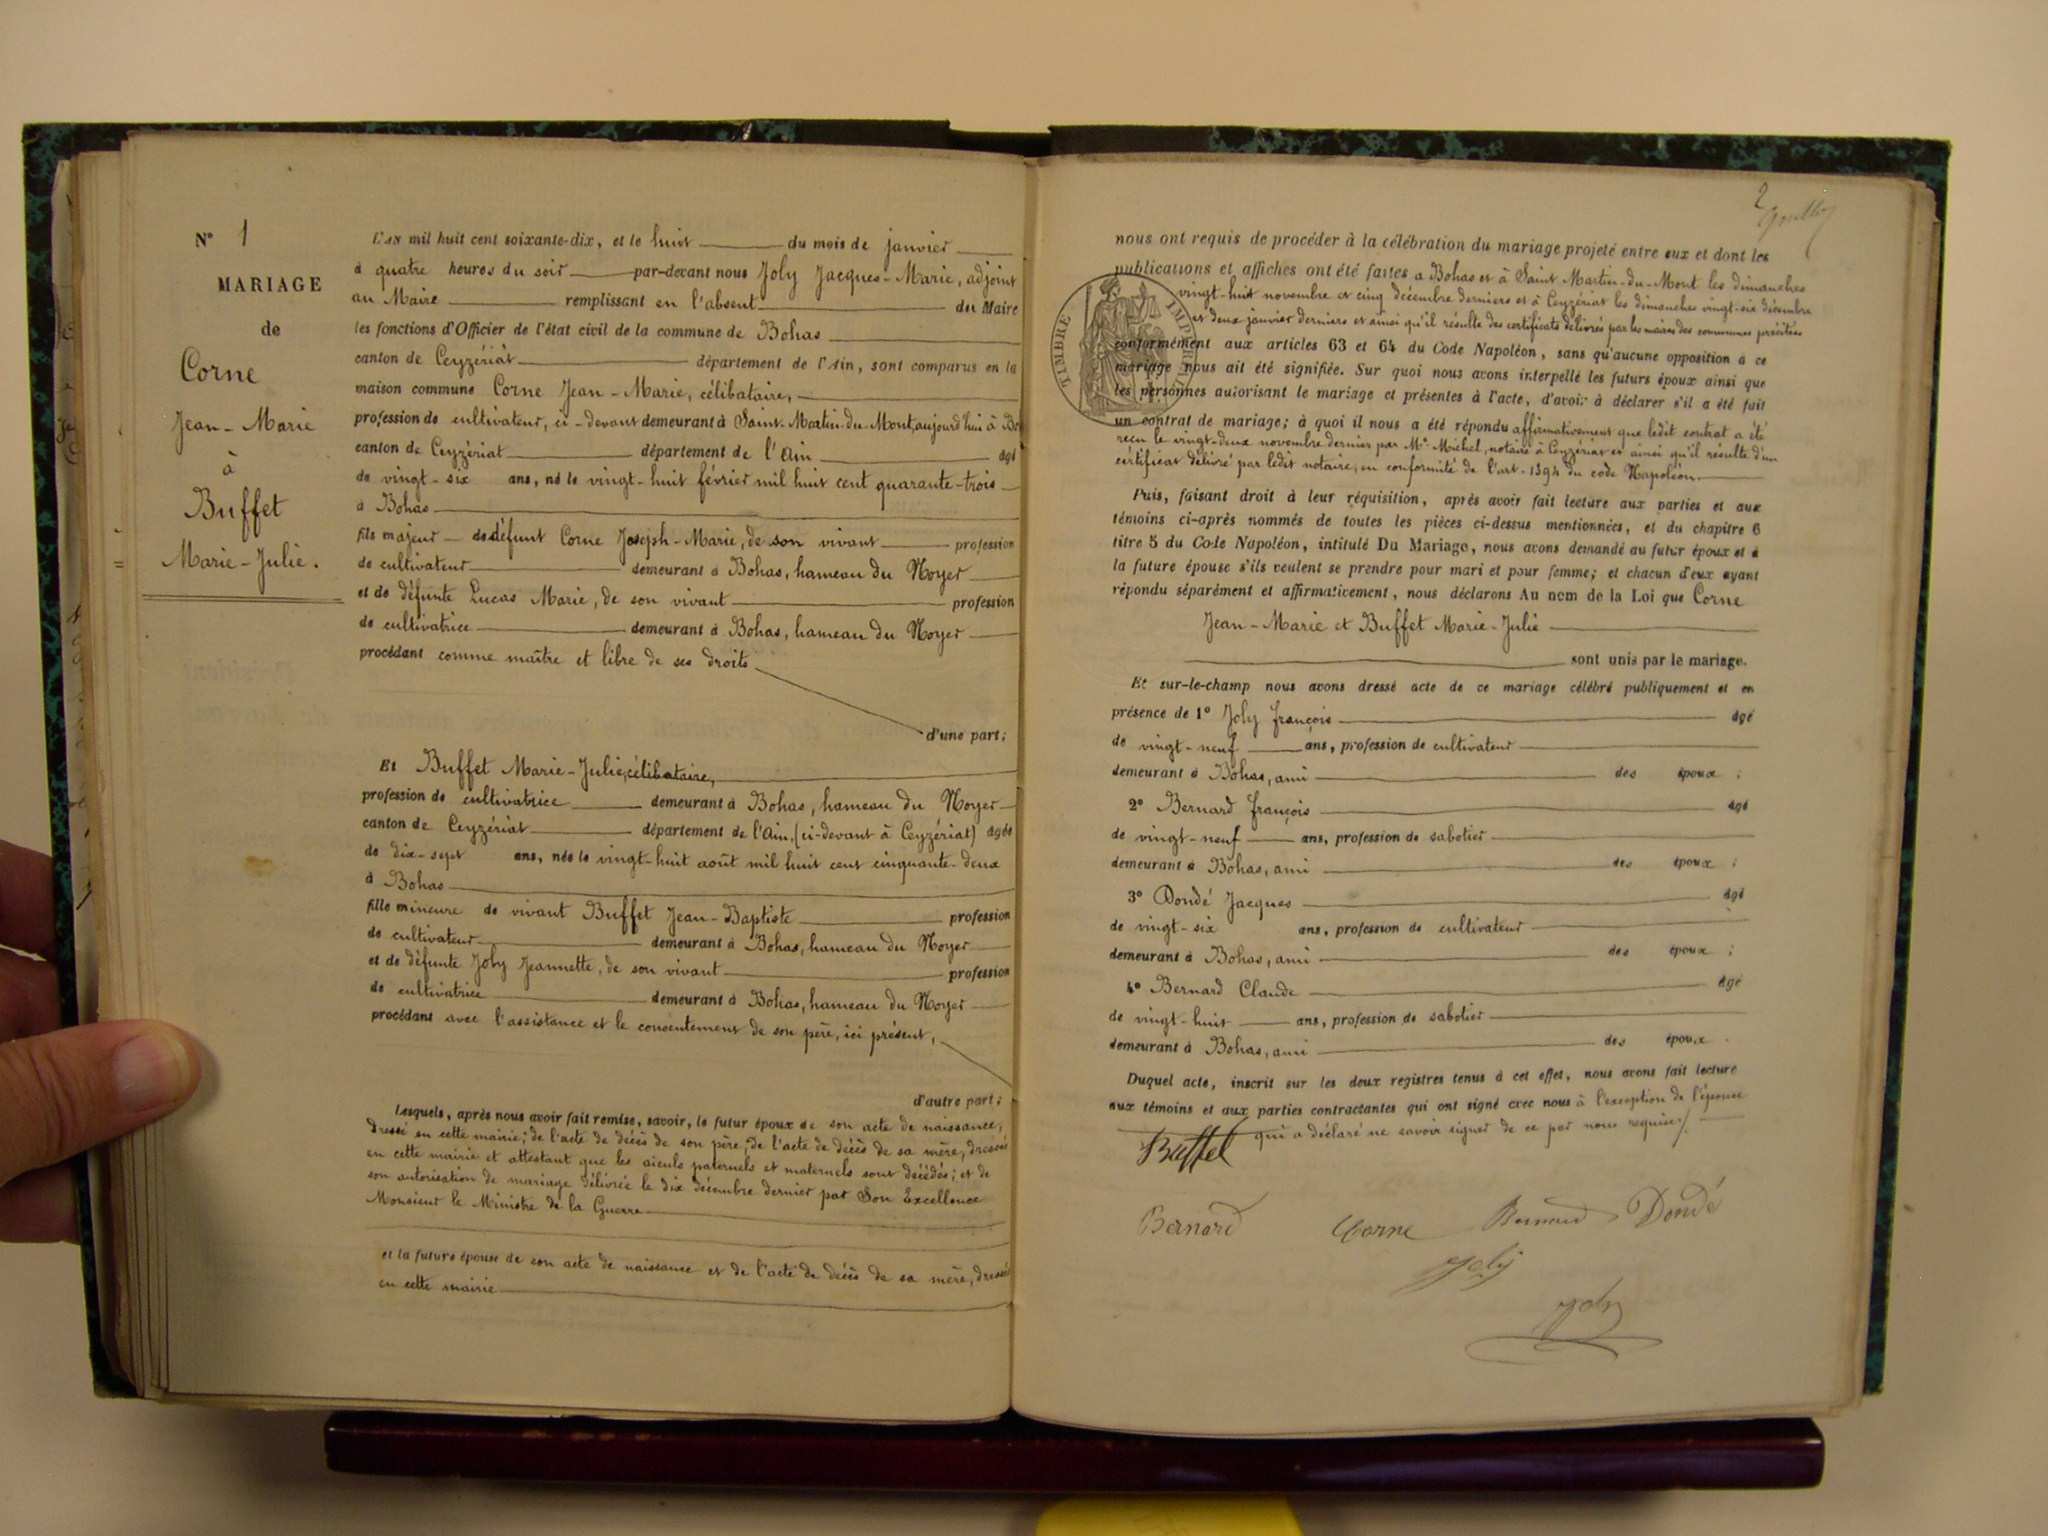 N° 1
MARIAGE
de
Corne
Jean-Marie
à
Buffet
Marie-Julie.
L'AN mil huit cent soixante-dix, et le huit du mois de janvier
à quatre heures du soir par-devant nous Joly Jacques-Marie, adjoint
au Maire remplissant en l'absent du Maire
les fonctions d'Officier de l'état civil de la commune de Bohas
canton de Ceyzériat département de l'Ain, sont comparus en la
maison commune Corne Jean-Marie, célibataire,
profession de cultivateur, ci-devant demeurant à Saint-Martin-du-Mont, aujourd'hui à Bo
canton de Ceyzériat département de l'Ain âgé
de vingt-six ans, né le vingt-huit février mil huit cent quarante-trois
à Bohas
fils majeur de défunt Corne Joseph-Marie, de son vivant profession
de cultivateur demeurant à Bohas, hameau du Noyer
et de défunte Lucas Marie, de son vivant profession
de cultivatrice demeurant à Bohas, hameau du Noyer
procédant comme maître et libre de ses droits
d'une part;
Et Buffet Marie-Julie, célibataire,
profession de cultivatrice demeurant à Bohas, hameau du Noyer
canton de Ceyzériat département de l'Ain, (ci-devant à Ceyzériat) âgée
de dix-sept ans, née le vingt-huit août mil huit cent cinquante-deux
à Bohas
fille mineure de vivant Buffet Jean-Baptiste profession
de cultivateur demeurant à Bohas, hameau du Noyer
et de défunte Joly Jeannette, de son vivant profession
de cultivatrice demeurant à Bohas, hameau du Noyer
procédant avec l'assistance et le consentement de son père, ici présent,
d'autre part;
Lesquels, après nous avoir fait remise, savoir, le futur époux de son acte de naissance,
dressé en cette mairie; de l'acte de décès de son père; de l'acte de décès de sa mère, dressés
en cette mairie et attestant que les aieuls paternels et maternels sont décédés; et de
son autorisation de mariage délivrée le dix décembre dernier par Son Excellence
Monsieur le Ministre de la Guerre
et la future épouse de son acte de naissance et de l'acte de décès de sa mère, dressés
en cette mairie
2
nous ont requis de procéder à la célébration du mariage projeté entre eux et dont les
publications et affiches ont été faites à Bohas et à Saint Martin-du-Mont les dimanches
vingt-huit novembre et cinq décembre derniers et à Ceyzériat les dimanches vingt-six décembre
et deux janvier derniers et ainsi qu'il résulte des certificats délivrés par les maires des communes précitées
TIMBRE IMPERIAL
conformément aux articles 63 et 64 du Code Napoléon, sans qu'aucune opposition à ce
mariage nous ait été signifiée. Sur quoi nous avons interpellé les futurs époux ainsi que
les personnes autorisant le mariage et présentes à l'acte, d'avoir à déclarer s'il a été fait
un contrat de mariage; à quoi il nous a été répondu affirmativement que ledit contrat a été
reçu le vingt-deux novembre dernier par Me Michel, notaire à Ceyzériat et ainsi qu'il résulte d'un
certificat délivré par ledit notaire, en conformité de l'art. 1394 du code Napoléon.
Puis, faisant droit à leur réquisition, après avoir fait lecture aux parties et aux
témoins ci-après nommés de toutes les pièces ci-dessus mentionnées, et du chapitre 6
titre 5 du Code Napoléon, intitulé Du Mariage, nous avons demandé au futur époux et à
la future épouse s'ils veulent se prendre pour mari et pour femme; et chacun d'eux ayant
répondu séparément et affirmativement, nous déclarons Au nom de la Loi que Corne
Jean-Marie et Buffet Marie-Julie
sont unis par le mariage.
Et sur-le-champ nous avons dressé acte de ce mariage célébré publiquement et en
présence de 1° Joly françois âgé
de vingt-neuf ans, profession de cultivateur
demeurant à Bohas, ami des époux;
2° Bernard françois âgé
de vingt-neuf ans, profession de sabotier
demeurant à Bohas, ami des époux;
3° Dondé Jacques âgé
de vingt-six ans, profession de cultivateur
demeurant à Bohas, ami des époux;
4° Bernard Claude âgé
de vingt-huit ans, profession de sabotier
demeurant à Bohas, ami des époux.
Duquel acte, inscrit sur les deux registres tenus à cet effet, nous avons fait lecture
aux témoins et aux parties contractantes qui ont signé avec nous à l'exception de l'épouse
qui a déclaré ne savoir signer de ce par nous requise.
Buffet
Bernard Corne Bernard Dondé
Joly
Joly